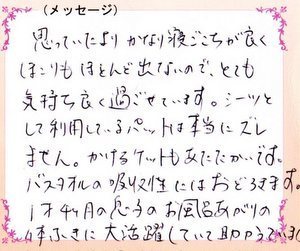 (メッセージ)
思っていたよりかなり寝ごこちが良く
ほこりもほとんど出ないので、とても
気持ち良く過ごせています。シーツと
して利用しているパットは本当にズレ
ません。かけるケットもあたたかいです。
バスタオルの吸収性にはおどろきます。
1才4ヶ月の息子のお風呂あがりの
体ふきに大活躍していて助かっています